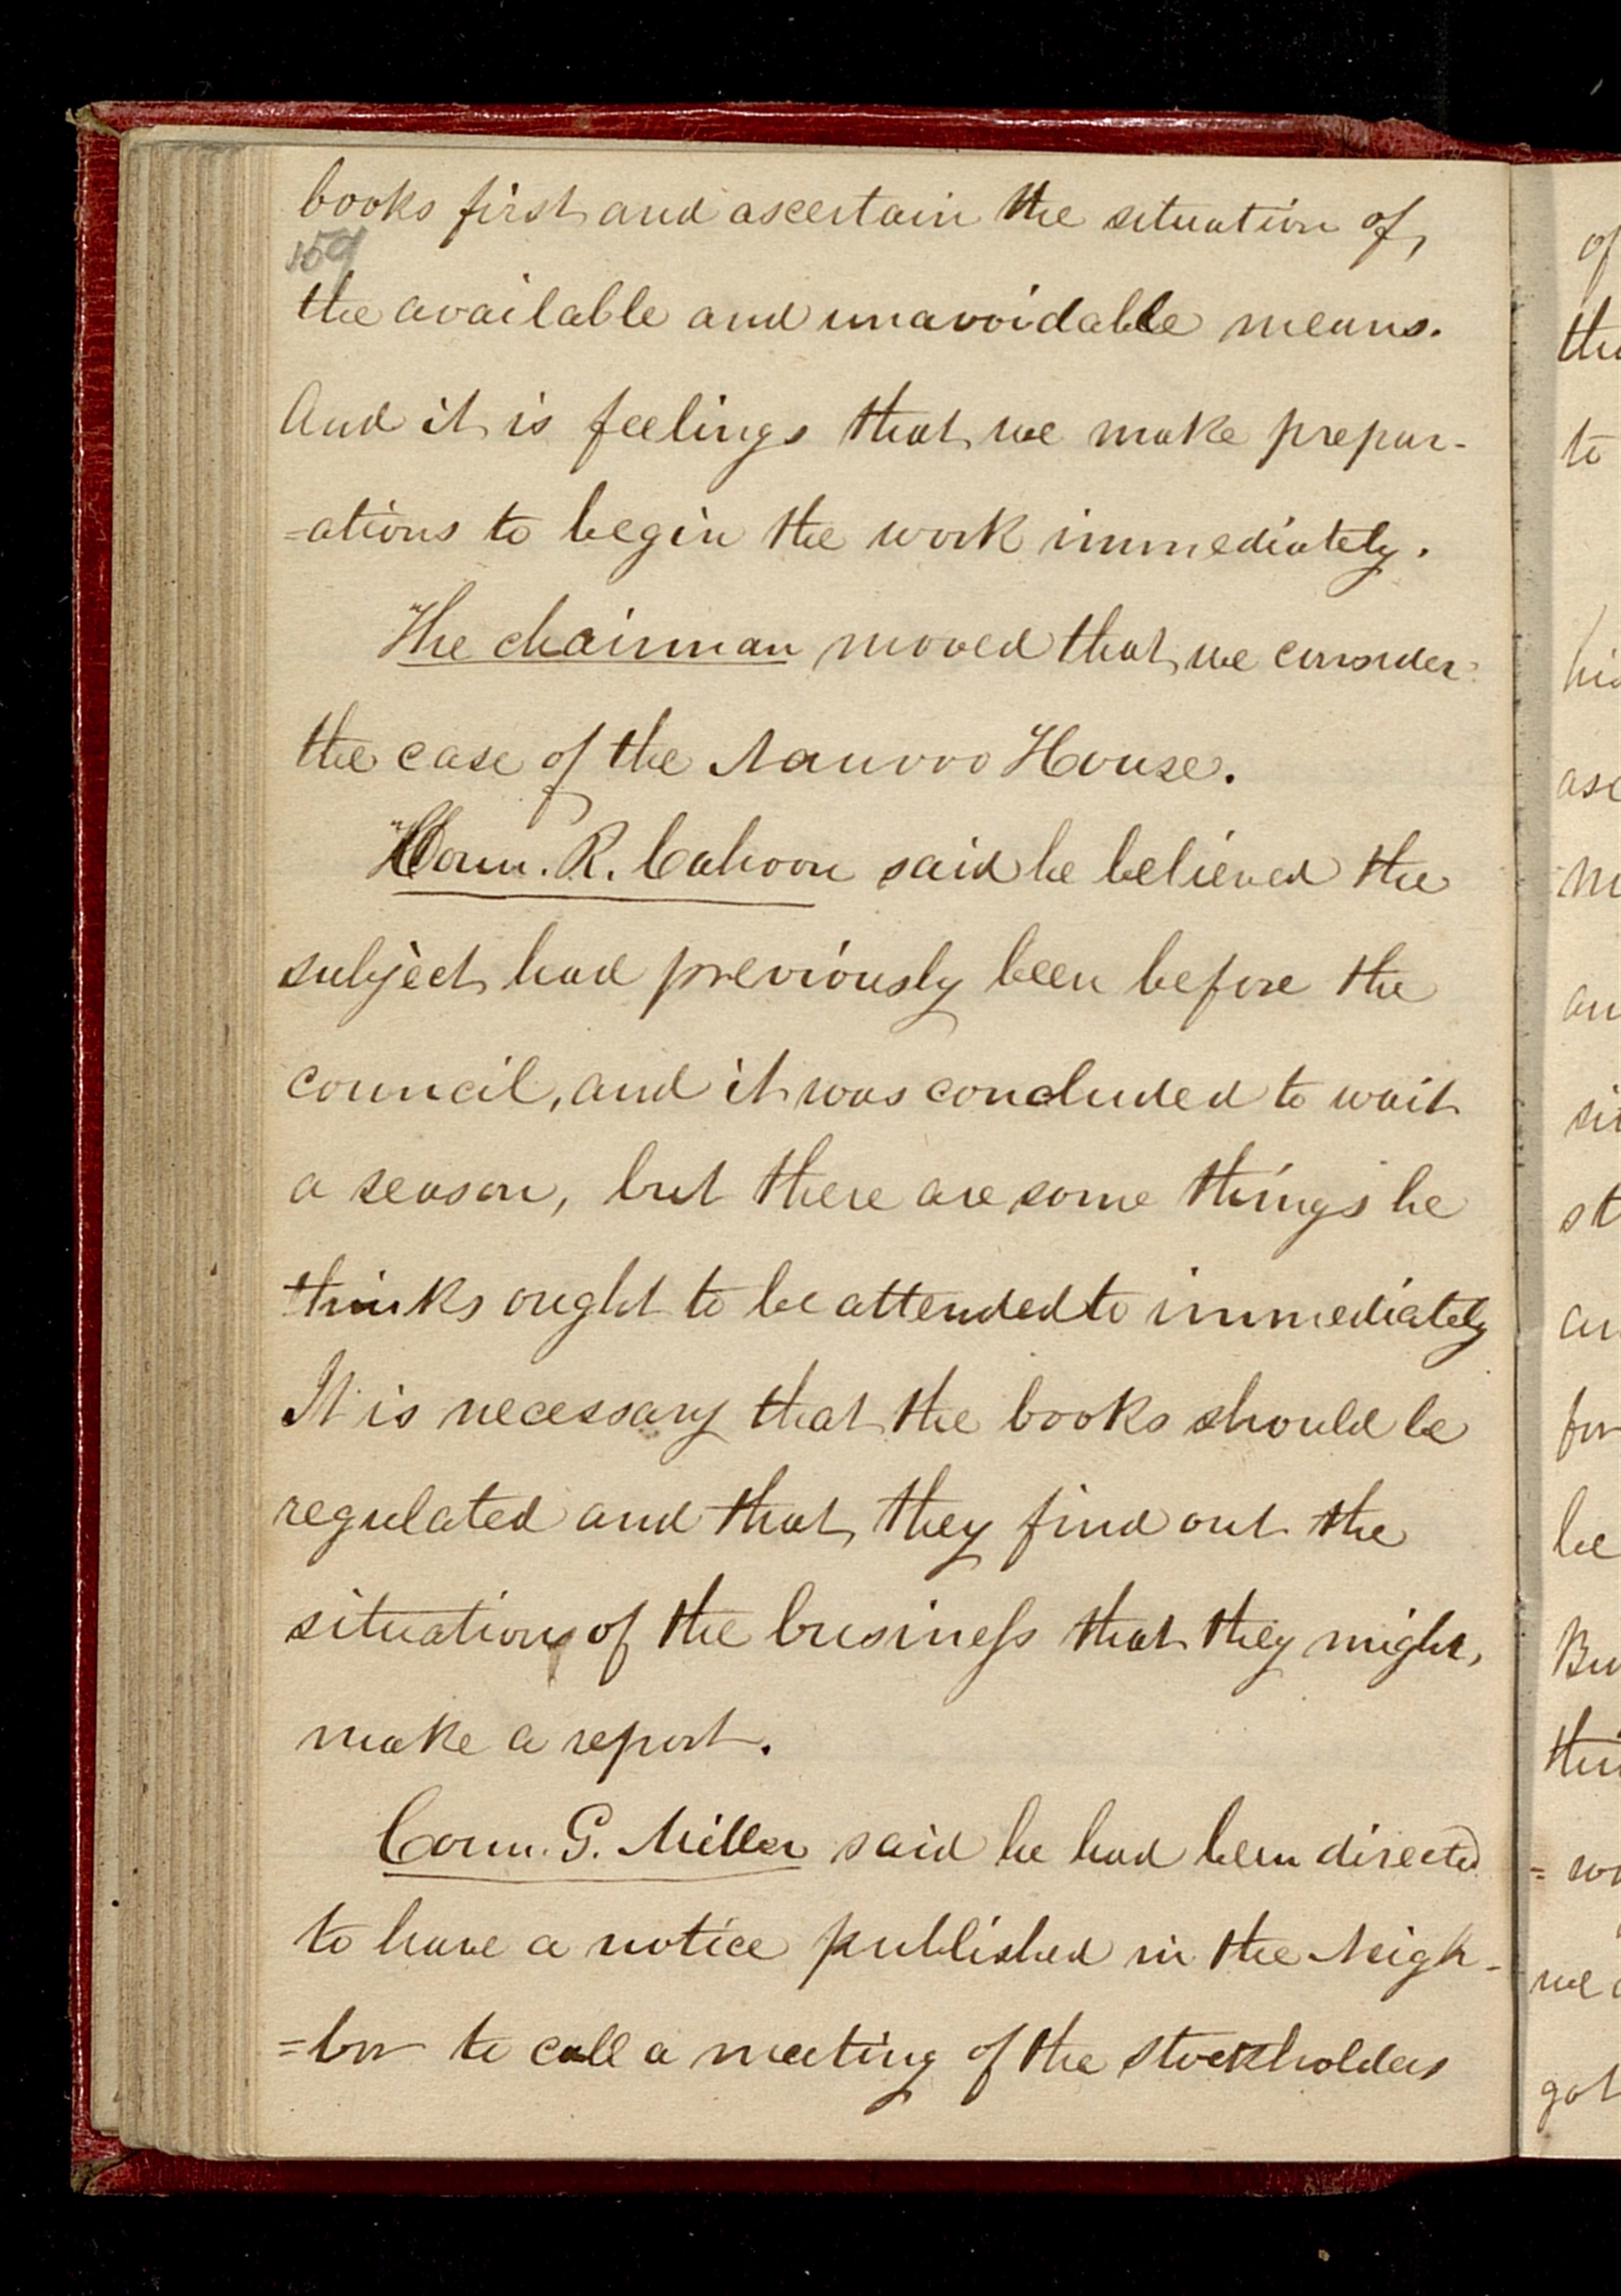 books first and ascertain the situation of,
159
the available and unavoidable means.
And it is feelings that we make prepar-
=ations to begin the work immediately.
The chairman moved that we consider
the case of the Nauvoo House.
Coun. R. Cahoon said he believed the
subject had previously been before the
council, and it was concluded to wait
a season, but there are some things he
thinks ought to be attended to immediately
It is necessary that the books should be
regulated and that they find out the
situation of the business that they might,
make a report.
Coun. G. Miller said he had been directed
to have a notice published in the Neigh-
=bor to call a meeting of the stockholders
of
the
to
his
an
st
an
for
be
we
got